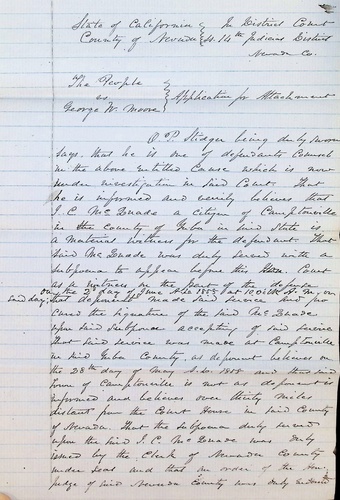 State of California } In District Court
County of Nevada } 14th Judicial District
Nevada Co.
The People
vs
George W. Moore } Application for Attachment
O. P. Stidger being duly sworn
says that he is one of defendants Counsel
in the above entitled Cause which is now
under investigation in said Court. That
he is informed and verily believes that
J. C. McQuade a citizen of Camptonville
in the County of Yuba in said State is
a material witness for the defendant. That
said McQuade was duly served with a
subpoena to appear before this Hon. Court
as a witness on the part of the
on the 2d day of June A.D. 1858 at 10 o'clk A.M. on
said day that deponent made said service and pro
cured the signature of the said McQuade
upon said subpoena accepting of said service
that said service was made at Camptonville
in said Yuba County, as deponent believes on
the 28th day of May A.D. 1858 and that said
town of Camptonville is not as deponent is
informed and believes over thirty miles
distant from the Court House in said County
of Nevada. That the subpoena duly served
upon the said J. C. McQuade was duly
issued by the Clerk of Nevada County
under seal and that an order of the Hon.
judge of said Nevada County was duly